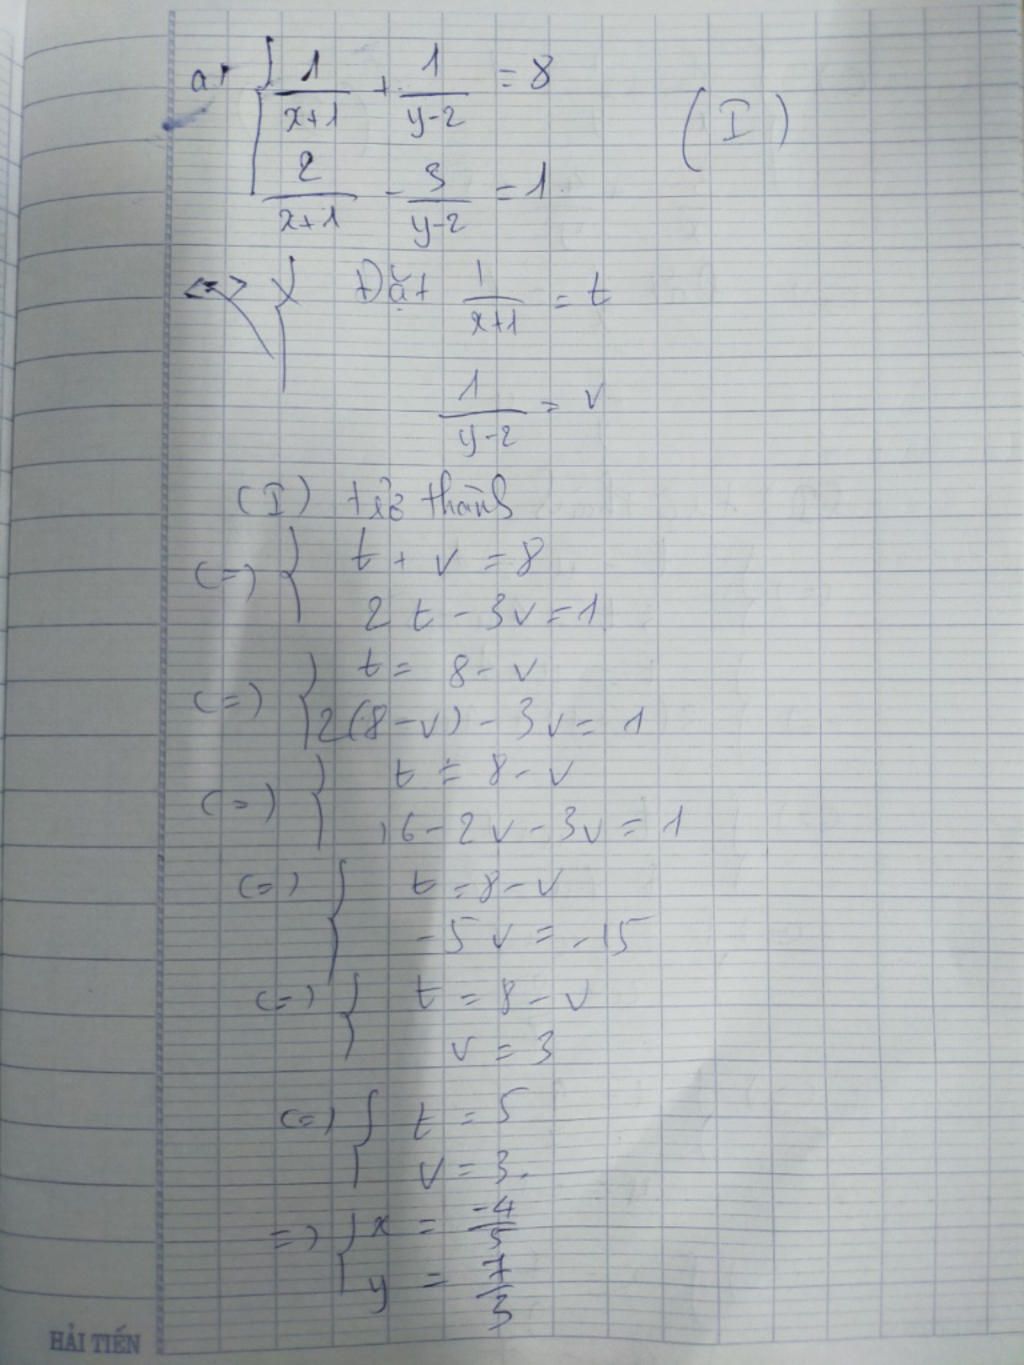 a, { 1/(x+1) + 1/(y-2) = 8
2/(x+1) - 3/(y-2) = 1
(I)
<=> { Đặt 1/(x+1) = t
1/(y-2) = v
(I) trở thành
(=) { t + v = 8
2t - 3v = 1
(=) { t = 8 - v
2(8-v) - 3v = 1
(=) { t = 8 - v
16 - 2v - 3v = 1
(=) { t = 8 - v
-5v = -15
(=) { t = 8 - v
v = 3
(=) { t = 5
v = 3.
=) { x = -4/5
y = 7/3
HẢI TIẾN